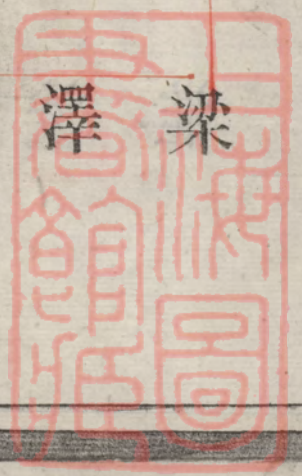 梁
澤
上海圖
書館藏